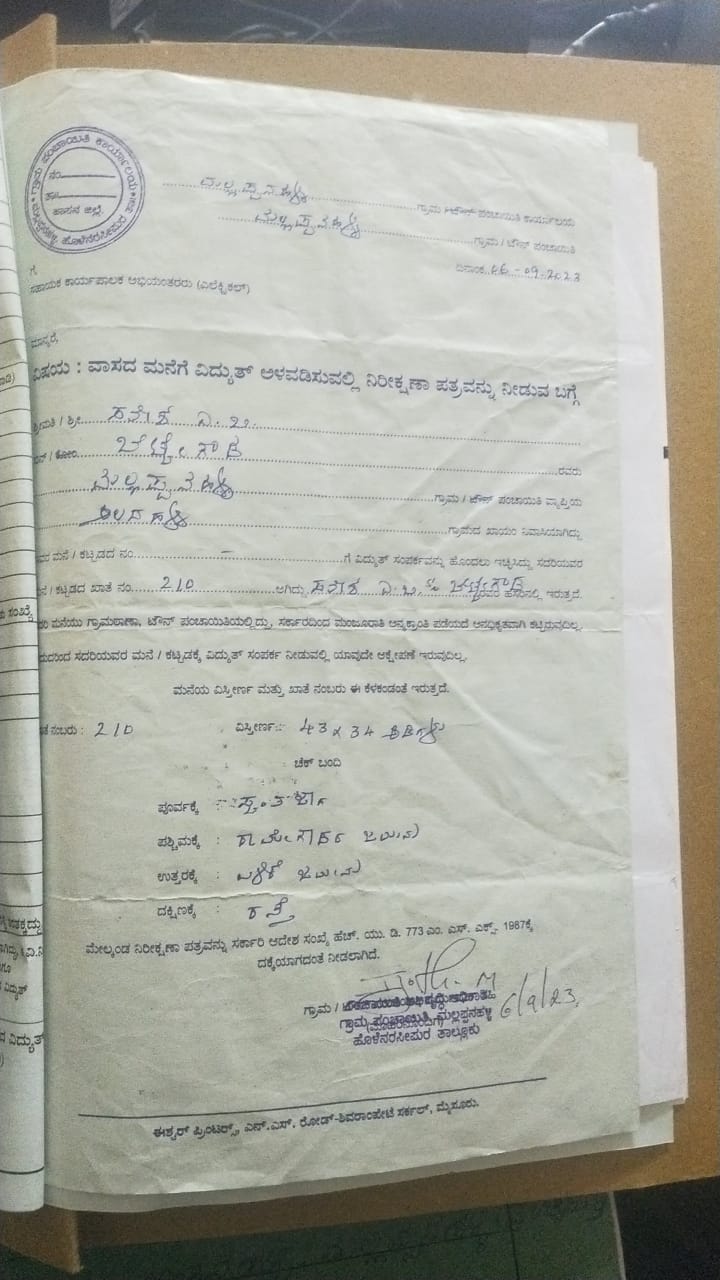 ಗ್ರಾಮ ಪಂಚಾಯಿತಿ ಕಾರ್ಯಾಲಯ
ನಂ.
ತಾ॥
ಹಾಸನ ಜಿಲ್ಲೆ.
ಹೊಳೆನರಸೀಪುರ
ಮಲ್ಲಪ್ಪನಹಳ್ಳಿ ಗ್ರಾಮ / ಟೌನ್ ಪಂಚಾಯಿತಿ ಕಾರ್ಯಾಲಯ
ಮಲ್ಲಪ್ಪನಹಳ್ಳಿ ಗ್ರಾಮ / ಟೌನ್ ಪಂಚಾಯಿತಿ
ದಿನಾಂಕ 06-09-2023
ಗೆ
ಸಹಾಯಕ ಕಾರ್ಯಪಾಲಕ ಅಭಿಯಂತರರು (ಎಲೆಕ್ಟ್ರಿಕಲ್)
ಮಾನ್ಯರೆ,
ವಿಷಯ : ವಾಸದ ಮನೆಗೆ ವಿದ್ಯುತ್ ಅಳವಡಿಸುವಲ್ಲಿ ನಿರೀಕ್ಷಣಾ ಪತ್ರವನ್ನು ನೀಡುವ ಬಗ್ಗೆ
ಶ್ರೀಮತಿ / ಶ್ರೀ.
/ ಕೋಂ. ರವರು
ಮಲ್ಲಪ್ಪನಹಳ್ಳಿ ಗ್ರಾಮ / ಟೌನ್ ಪಂಚಾಯಿತಿ ವ್ಯಾಪ್ತಿಯ
ಆಲದಹಳ್ಳಿ ಗ್ರಾಮದ ಖಾಯಂ ನಿವಾಸಿಯಾಗಿದ್ದು
ಮನೆ / ಕಟ್ಟಡದ ನಂ. - ಗೆ ವಿದ್ಯುತ್ ಸಂಪರ್ಕವನ್ನು ಹೊಂದಲು ಇಚ್ಛಿಸಿದ್ದು ಸದರಿಯವರ
/ ಕಟ್ಟಡದ ಖಾತೆ ನಂ. 210 ಆಗಿದ್ದು ರವರ ಹೆಸರಿನಲ್ಲಿ ಇರುತ್ತದೆ.
ಮನೆಯು ಗ್ರಾಮಠಾಣಾ, ಟೌನ್ ಪಂಚಾಯಿತಿಯಲ್ಲಿದ್ದು, ಸರ್ಕಾರದಿಂದ ಮಂಜೂರಾತಿ ಪಡೆಯದೆ ಅನಧಿಕೃತವಾಗಿ ಕಟ್ಟಿರುವುದಿಲ್ಲ.
ಸದರಿಯವರ ಮನೆ / ಕಟ್ಟಡಕ್ಕೆ ವಿದ್ಯುತ್ ಸಂಪರ್ಕ ನೀಡುವಲ್ಲಿ ಯಾವುದೇ ಆಕ್ಷೇಪಣೆ ಇರುವುದಿಲ್ಲ.
ಮನೆಯ ವಿಸ್ತೀರ್ಣ ಮತ್ತು ಖಾತೆ ನಂಬರು ಈ ಕೆಳಕಂಡಂತೆ ಇರುತ್ತದೆ.
ನಂಬರು : 210 ವಿಸ್ತೀರ್ಣ : 43 x 34 ಅಡಿಗಳು
ಚೆಕ್ ಬಂದಿ
ಪೂರ್ವಕ್ಕೆ :
ಪಶ್ಚಿಮಕ್ಕೆ : ರಾಮೇಗೌಡರ ಜಮೀನು
ಉತ್ತರಕ್ಕೆ : ಜಮೀನು
ದಕ್ಷಿಣಕ್ಕೆ : ರಸ್ತೆ
ಮೇಲ್ಕಂಡ ನಿರೀಕ್ಷಣಾ ಪತ್ರವನ್ನು ಸರ್ಕಾರಿ ಆದೇಶ ಸಂಖ್ಯೆ ಹೆಚ್. ಯು. ಡಿ. 773 ಎಂ. ಎಸ್. ಎಕ್ಸ್. 1987ಕ್ಕೆ
ದಕ್ಕೆಯಾಗದಂತೆ ನೀಡಲಾಗಿದೆ.
6/9/23
ಗ್ರಾಮ /
ಗ್ರಾಮ ಪಂಚಾಯಿತಿ, ಮಲ್ಲಪ್ಪನಹಳ್ಳಿ
ಹೊಳೆನರಸೀಪುರ ತಾಲ್ಲೂಕು
ಈಶ್ವರ್ ಪ್ರಿಂಟರ್ಸ್, ಎನ್.ಎಸ್. ರೋಡ್-ಶಿವರಾಂಪೇಟೆ ಸರ್ಕಲ್, ಮೈಸೂರು.